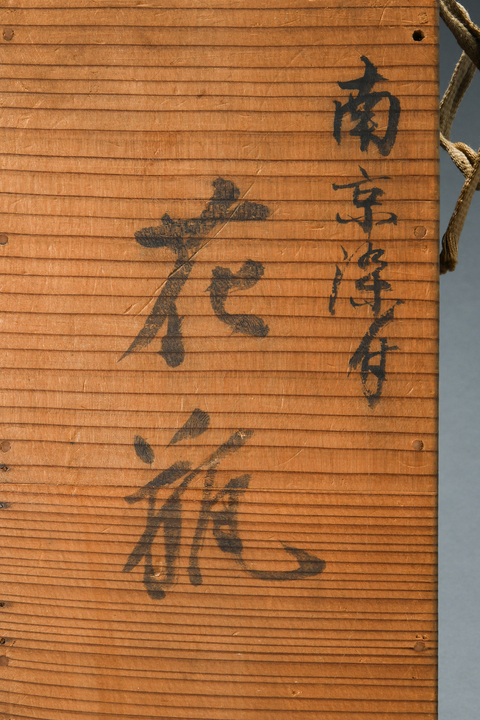 南京染付
花瓶